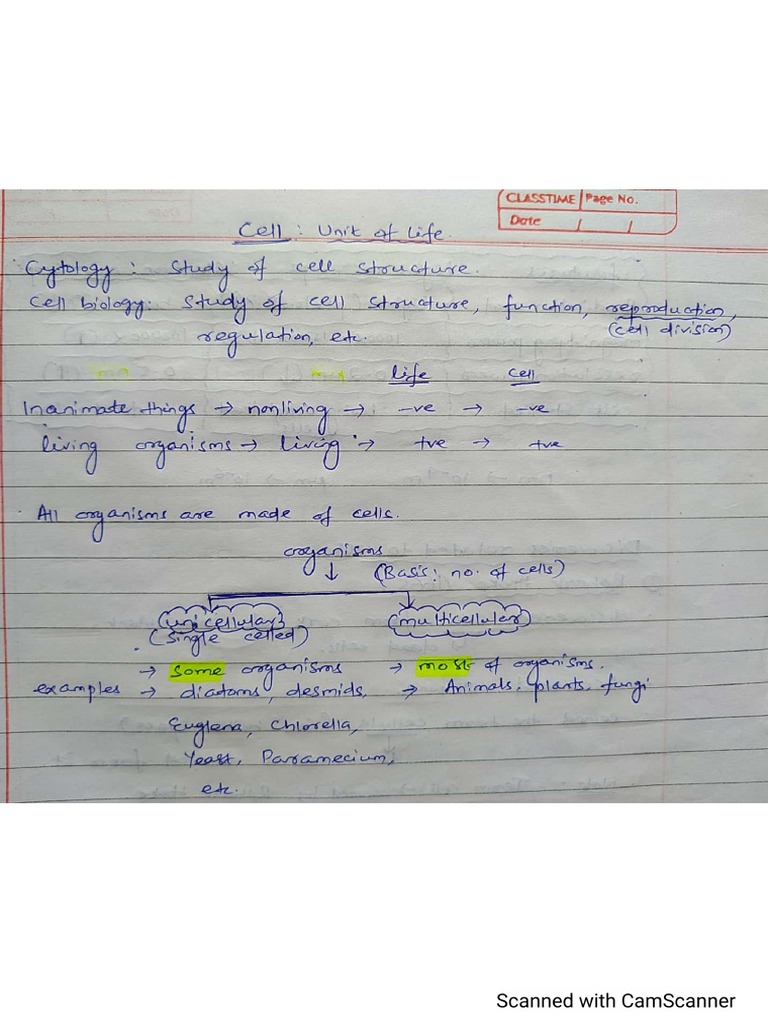 CLASSTIME Page No.
Date / /
Cell : Unit of Life.
Cytology : Study of cell structure.
Cell biology: Study of cell structure, function, reproduction,
(cell division)
regulation, etc.
life cell
Inanimate things → nonliving → -ve → -ve
living organisms → living → +ve → +ve
All organisms are made of cells.
organisms
↓ (Basis: no. of cells)
unicellular multicellular
(single celled)
→ some organisms → most of organisms.
examples → diatoms, desmids, → Animals, plants, fungi
Euglena, Chlorella,
Yeast, Paramecium,
etc.
Scanned with CamScanner